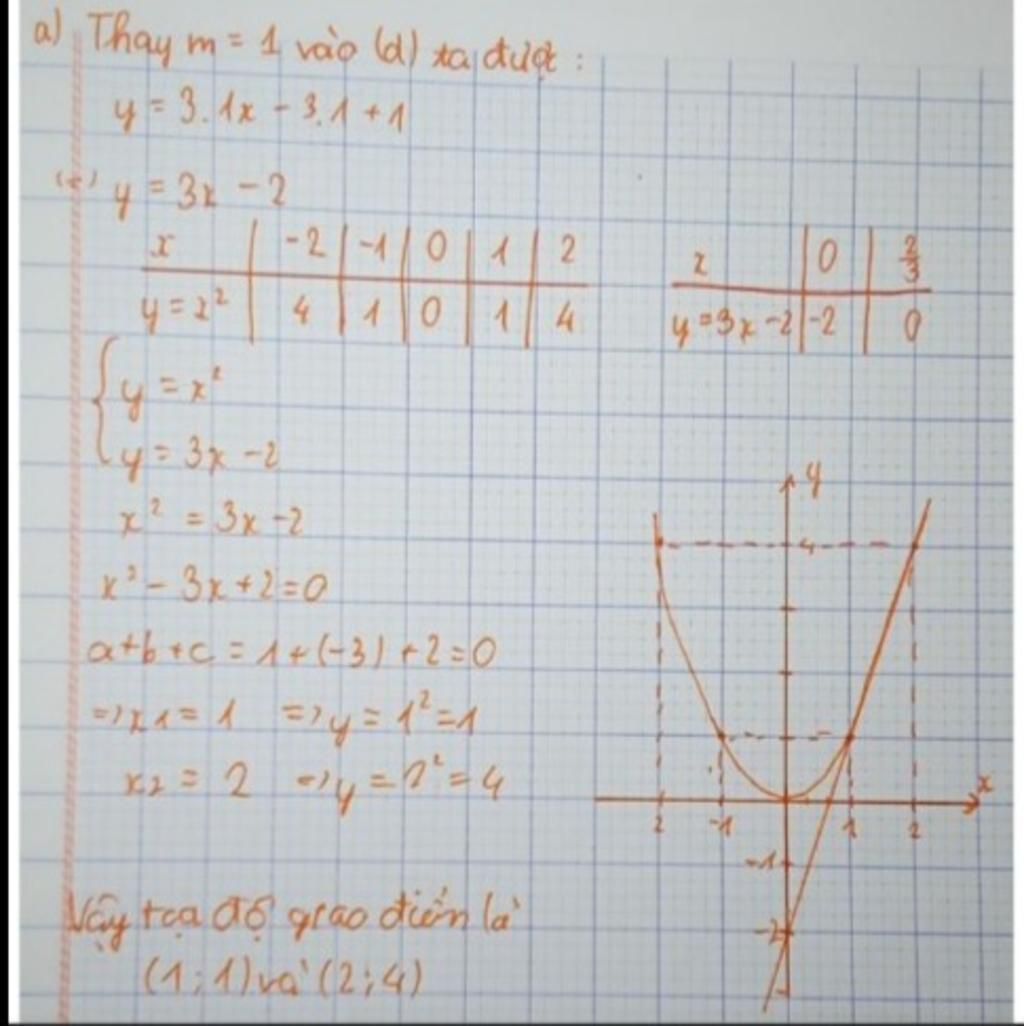 a) Thay m = 1 vào (d) ta được :
y = 3.1x - 3.1 + 1
y = 3x - 2
x | -2 | -1 | 0 | 1 | 2
y = x² | 4 | 1 | 0 | 1 | 4
x | 0 | 2/3
y = 3x - 2 | -2 | 0
{ y = x²
y = 3x - 2
x² = 3x - 2
x² - 3x + 2 = 0
a + b + c = 1 + (-3) + 2 = 0
=> x1 = 1 => y = 1² = 1
x2 = 2 => y = 2² = 4
Vậy tọa độ giao điểm là
(1; 1) và (2; 4)
y
4
x
2 -1 1 2
-1
-2